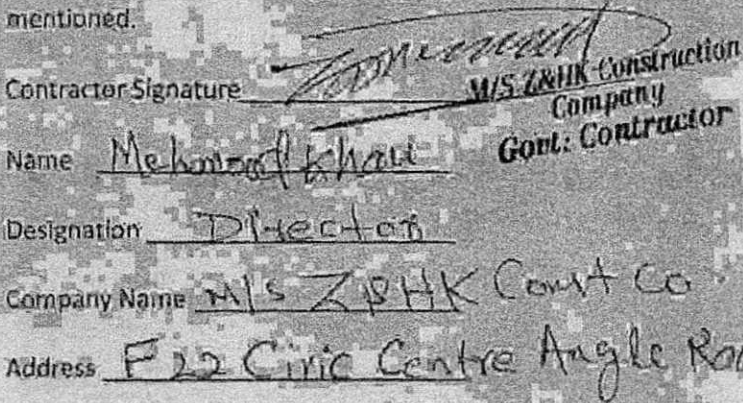 mentioned.
Contractor Signature
M/S Z&HK Construction
Company
Govt: Contractor
Name Mehmood Khan
Designation Director
Company Name M/s Z&HK Const Co
Address F 22 Civic Centre Angle